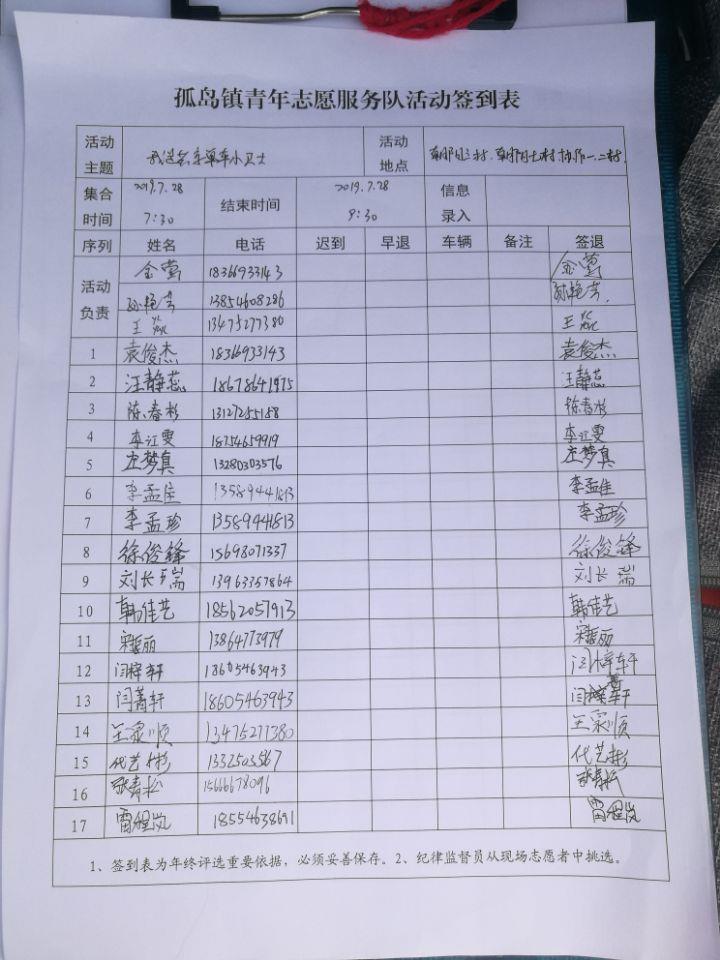 孤岛镇青年志愿服务队活动签到表
活动主题 争做共享单车小卫士 活动地点
集合时间 2019.7.28 7:30 结束时间 2019.7.28 9:30 信息录入
序列 姓名 电话 迟到 早退 车辆 备注 签退
活动负责 金莺 18366933143 金莺
孙艳芳 13854608286 孙艳芳
王焱 13475277380 王焱
1 袁俊杰 18366933143 袁俊杰
2 汪静蕊 18678641975 汪静蕊
3 陈春杉 13127255188 陈春杉
4 李江雯 18754659919 李江雯
5 庄梦真 13280303576 庄梦真
6 李孟佳 13589441813 李孟佳
7 李孟珍 13589441813 李孟珍
8 徐俊锋 15698071337 徐俊锋
9 刘长瑞 13963357864 刘长瑞
10 韩佳艺 18562057913 韩佳艺
11 13864773979
12 闫梓轩 18605463943 闫梓轩
13 闫菁轩 18605463943 闫菁轩
14 王泉顺 13475277380 王泉顺
15 代艺彬 1332503567 代艺彬
16 张青松 15666678096 张青松
17 雷程岚 18554638691 雷程岚
1、签到表为年终评选重要依据，必须妥善保存。2、纪律监督员从现场志愿者中挑选。